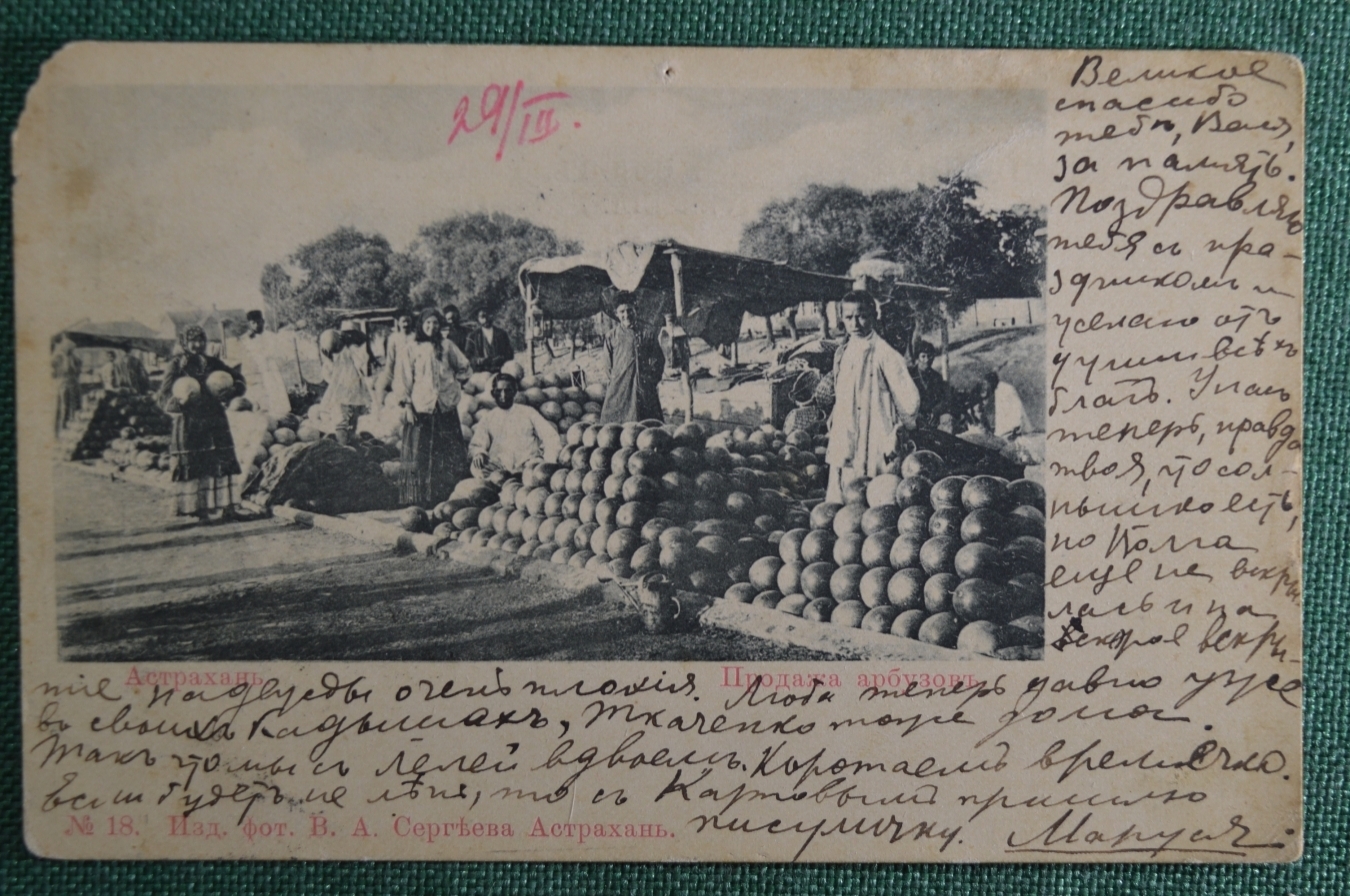 29/III.
Великое
спасибо
тебѣ, Валя,
за память.
Поздравляю
тебя съ пра-
здникомъ и
желаю отъ
души всѣхъ
благъ. У насъ
теперь, правда
твоя, что сол-
нышко есть,
но Волга
еще не вскры-
лась и на
скорое вскры-
тіе надежды очень плохія. Люба теперь давно уже
въ своихъ Кадышахъ, Ткаченко тоже дома.
Такъ что мы съ Лелей вдвоемъ. Коротаемъ времячко.
Если будетъ не лѣнь, то съ Картовымъ пришлю
писульчку. Маруся.
Астрахань. Продажа арбузовъ.
№ 18. Изд. фот. В. А. Сергѣева Астрахань.